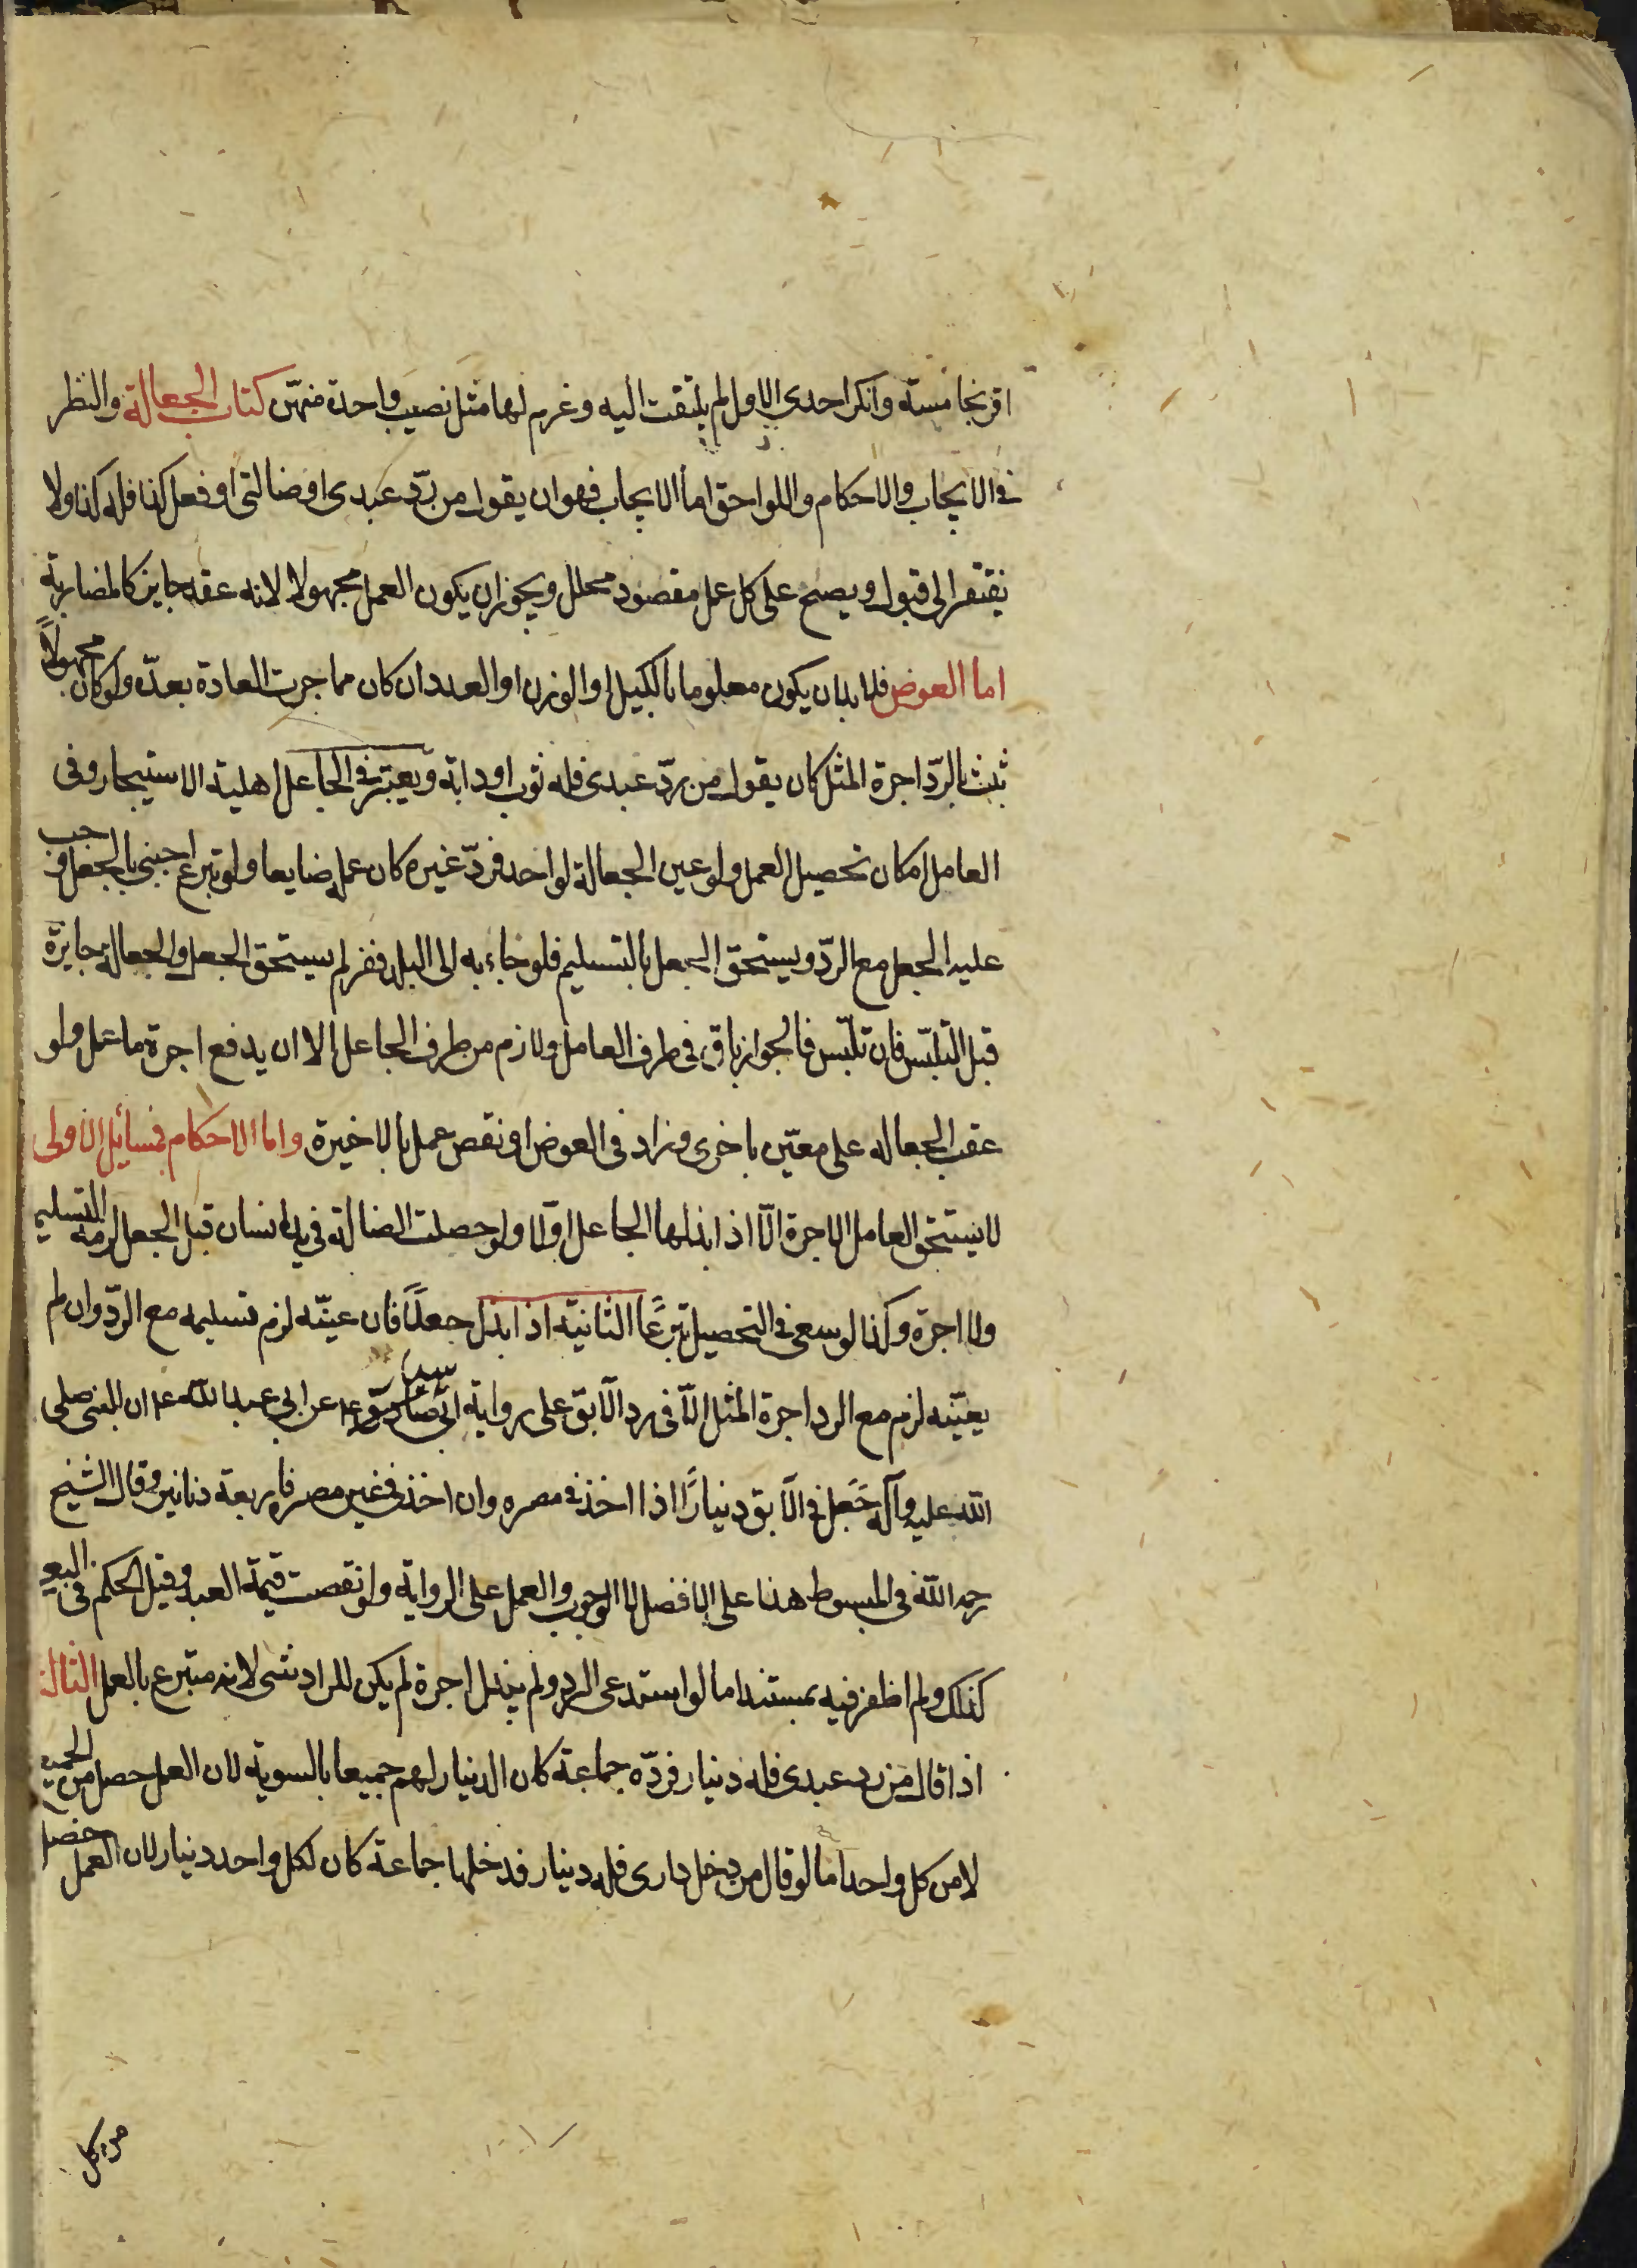 اقر بخامسة وانكر احدى الاول لم يلتفت اليه وغرم لها مثل نصيب واحدة منهن كتاب الجعالة والنظر
في الايجاب والاحكام واللواحق اما الايجاب فهو ان يقول من ردّ عبدى او ضالتى او فعل كذا فله كذا ولا
يفتقر الى قبول ويصح على كل عمل مقصود محلل ويجوز ان يكون العمل مجهولا لانه عقد جايز كالمضاربة
اما العوض فلا بد ان يكون معلوما بالكيل او الوزن او العدد ان كان مما جرت العادة بعدّه ولو كان مجهولاً
ثبت بالردّ اجرة المثل كان يقول من ردّ عبدى فله ثوب او دابة ويعتبر في الجاعل اهلية الاستيجار وفى
العامل امكان تحصيل العمل ولو عين الجعالة لواحد فردّ غيره كان عمله ضايعا ولو تبرع اجنبى بالجعل وجب
عليه الجعل مع الردّ ويستحق الجعل بالتسليم فلو جاء به الى البلد ففر لم يستحق الجعل والجعالة جايزة
قبل التلبّس فان تلبّس فالجواز باق في طرف العامل ولازم من طرف الجاعل الا ان يدفع اجرة ما عمل ولو
عقب الجعاله على معيّن باخرى وزاد في العوض او نقص عمل بالاخيرة واما الاحكام فمسائل الاولى
لا يستحق العامل الاجرة الّا اذا بذلها الجاعل اوّلا ولو حصلت الضالة في يد انسان قبل الجعل لزمه التسليم
ولا اجرة وكذا لو سعى في التحصيل تبرّعًا الثانية اذا بذل جعلًا فان عينّه لزم تسليمه مع الردّ وان لم
يعيّنه لزم مع الرد اجرة المثل الّا في رد الآبق على رواية ابى سيار عن ابي عبد الله ع ان النبى صلى
الله عليه وآله جَعل في الآبق دينارًا اذا اخذ في مصره وان اخذ في غير مصره فاربعة دنانير وقال الشيخ
رحمه الله في المبسوط هذا على الافضل لا الوجوب والعمل على الرواية ولو نقصت قيمة العبد وقيل الحكم في البعير
كذلك ولم اظفر فيه بمستند اما لو استدعى الرد ولم يبذل اجرة لم يكن للراد شى لانه متبرع بالعمل الثالثة
اذا قال من رد عبدى فله دينار فردّه جماعة كان الدينار لهم جميعا بالسوية لان العمل حصل من الجميع
لا من كل واحد اما لو قال من دخل دارى فله دينار فدخلها جماعة كان لكل واحد دينار لان العمل حصل
من كل